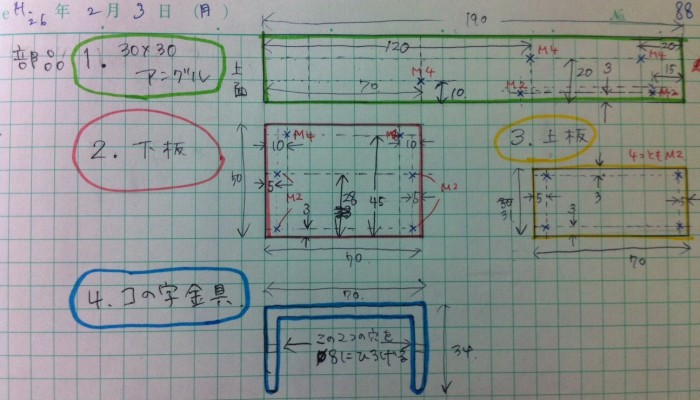 H.26 年 2 月 3 日 (月) No. 88
190
部品 1. 30×30
アングル
上面
120
20
M4
M4
70
M4
20
3
15
10
M2
M2
2. 下板
M4
10
10
50
5
5
3
28
45
M2
M2
70
3. 上板
4つともM2
31
5
5
3
3
70
4. コの字金具
70
この2つの穴を
φ8にひろげる
34